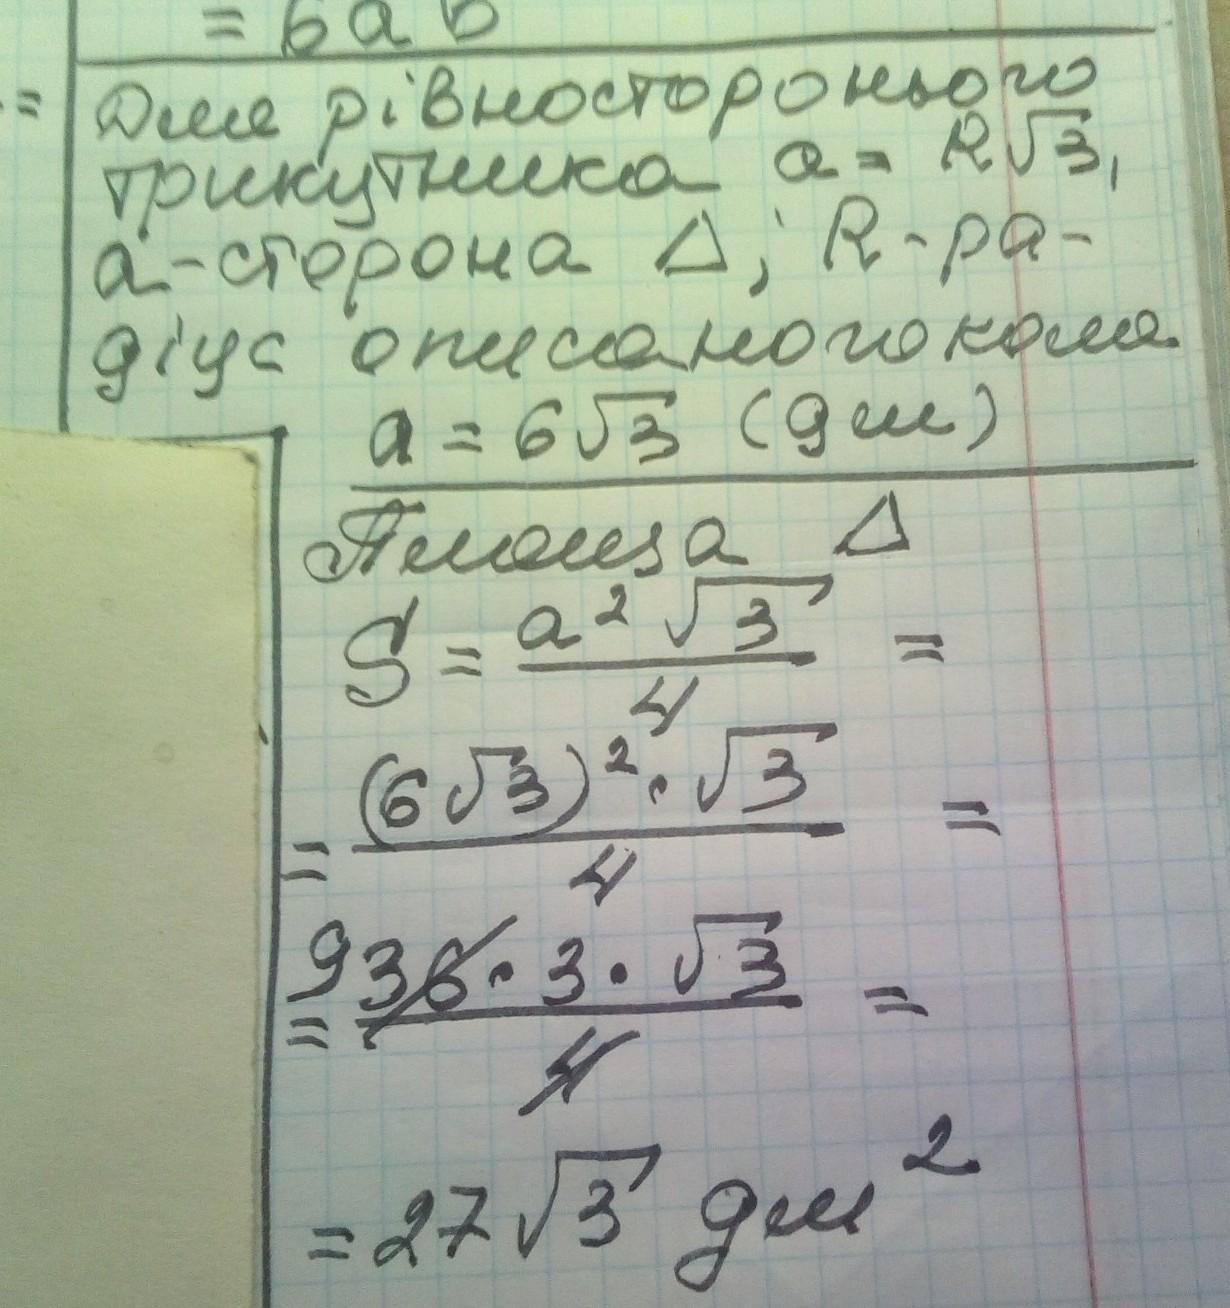 = 6ab
=
Для рівностороннього
трикутника a = R√3,
a - сторона Δ; R - ра-
діус описаного кола
a = 6√3 (дм)
Площа Δ
S = a²√3 / 4 =
= (6√3)² · √3 / 4 =
= 9 36 · 3 · √3 / 4 =
= 27√3 дм²